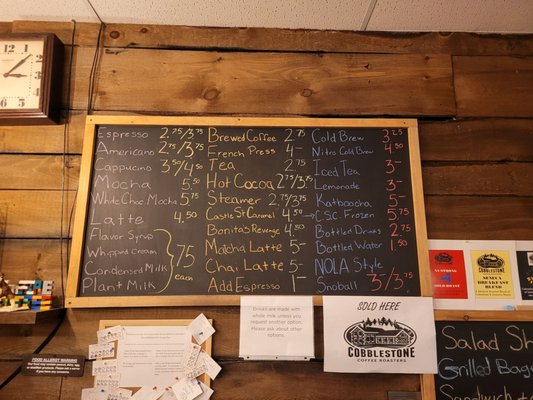 Espresso 2.75/3.75
Americano 2.75/3.75
Cappucino 3.50/4.50
Mocha 5.50
White Choc Mocha 5.75
Latte 4.50
Flavor Syrup
Whipped Cream
Condensed Milk
Plant Milk
.75
each
Brewed Coffee 2.75
French Press 4-
Tea 2.75
Hot Cocoa 2.75/3.75
Steamer 2.75/3.75
Castle St Caramel 4.50
Bonita's Revenge 4.50
Matcha Latte 5-
Chai Latte 5-
Add Espresso 1-
Cold Brew 3.25
Nitro Cold Brew 4.50
Iced Tea 3-
Lemonade 3-
Katboocha 5-
CSC Frozen 5.75
Bottled Drinks 2.75
Bottled Water 1.50
NOLA Style
Snoball 3/3.75
Drinks are made with
whole milk unless you
request another option.
Please ask about other
options.
SOLD HERE
COBBLESTONE
COFFEE ROASTERS
FOOD ALLERGY WARNING
SENECA
BREAKFAST BLEND
Salad
Grilled
Sandwich